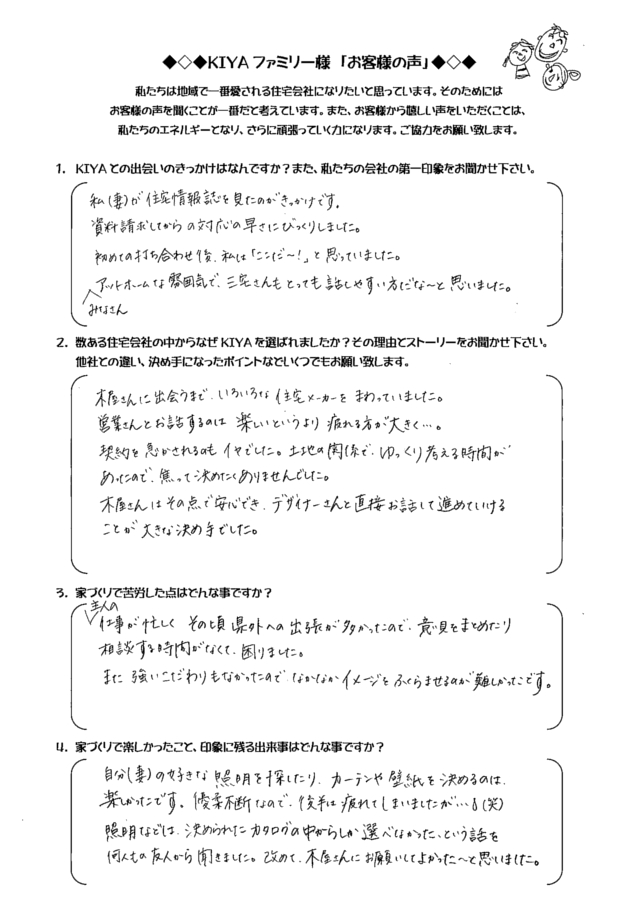 ◆◇◆KIYAファミリー様「お客様の声」◆◇◆
私たちは地域で一番愛される住宅会社になりたいと思っています。そのためには
お客様の声を聞くことが一番だと考えています。また、お客様から嬉しい声をいただくことは、
私たちのエネルギーとなり、さらに頑張っていく力になります。ご協力をお願い致します。
1. KIYAとの出会いのきっかけはなんですか？また、私たちの会社の第一印象をお聞かせ下さい。
私(妻)が住宅情報誌を見たのがきっかけです。
資料請求してからの対応の早さにびっくりしました。
初めての打ち合わせ後、私は「ここだ〜！」と思っていました。
アットホームな雰囲気で、三宅さんもとっても話しやすい方だな〜と思いました。
みなさん
2. 数ある住宅会社の中からなぜKIYAを選ばれましたか？その理由とストーリーをお聞かせ下さい。
他社との違い、決め手になったポイントなどいくつでもお願い致します。
木屋さんに出会うまで、いろいろな住宅メーカーをまわっていました。
営業さんとお話するのは楽しいというより疲れる方が大きく…。
契約を急かされるのもイヤでした。土地の関係で、ゆっくり考える時間が
あったので、焦って決めたくありませんでした。
木屋さんはその点で安心でき、デザイナーさんと直接お話して進めていける
ことが大きな決め手でした。
3. 家づくりで苦労した点はどんな事ですか？
主人の
仕事が忙しく その頃県外への出張が多かったので、意見をまとめたり
相談する時間がなくて、困りました。
また 強いこだわりもなかったので、なかなかイメージをふくらませるのが難しかったです。
4. 家づくりで楽しかったこと、印象に残る出来事はどんな事ですか？
自分(妻)の好きな照明を探したり、カーテンや壁紙を決めるのは、
楽しかったです。優柔不断なので、後半は疲れてしまいましたが…(笑)
照明などは、決められたカタログの中からしか選べなかった、という話を
何人もの友人から聞きました。改めて、木屋さんにお願いしてよかった〜と思いました。